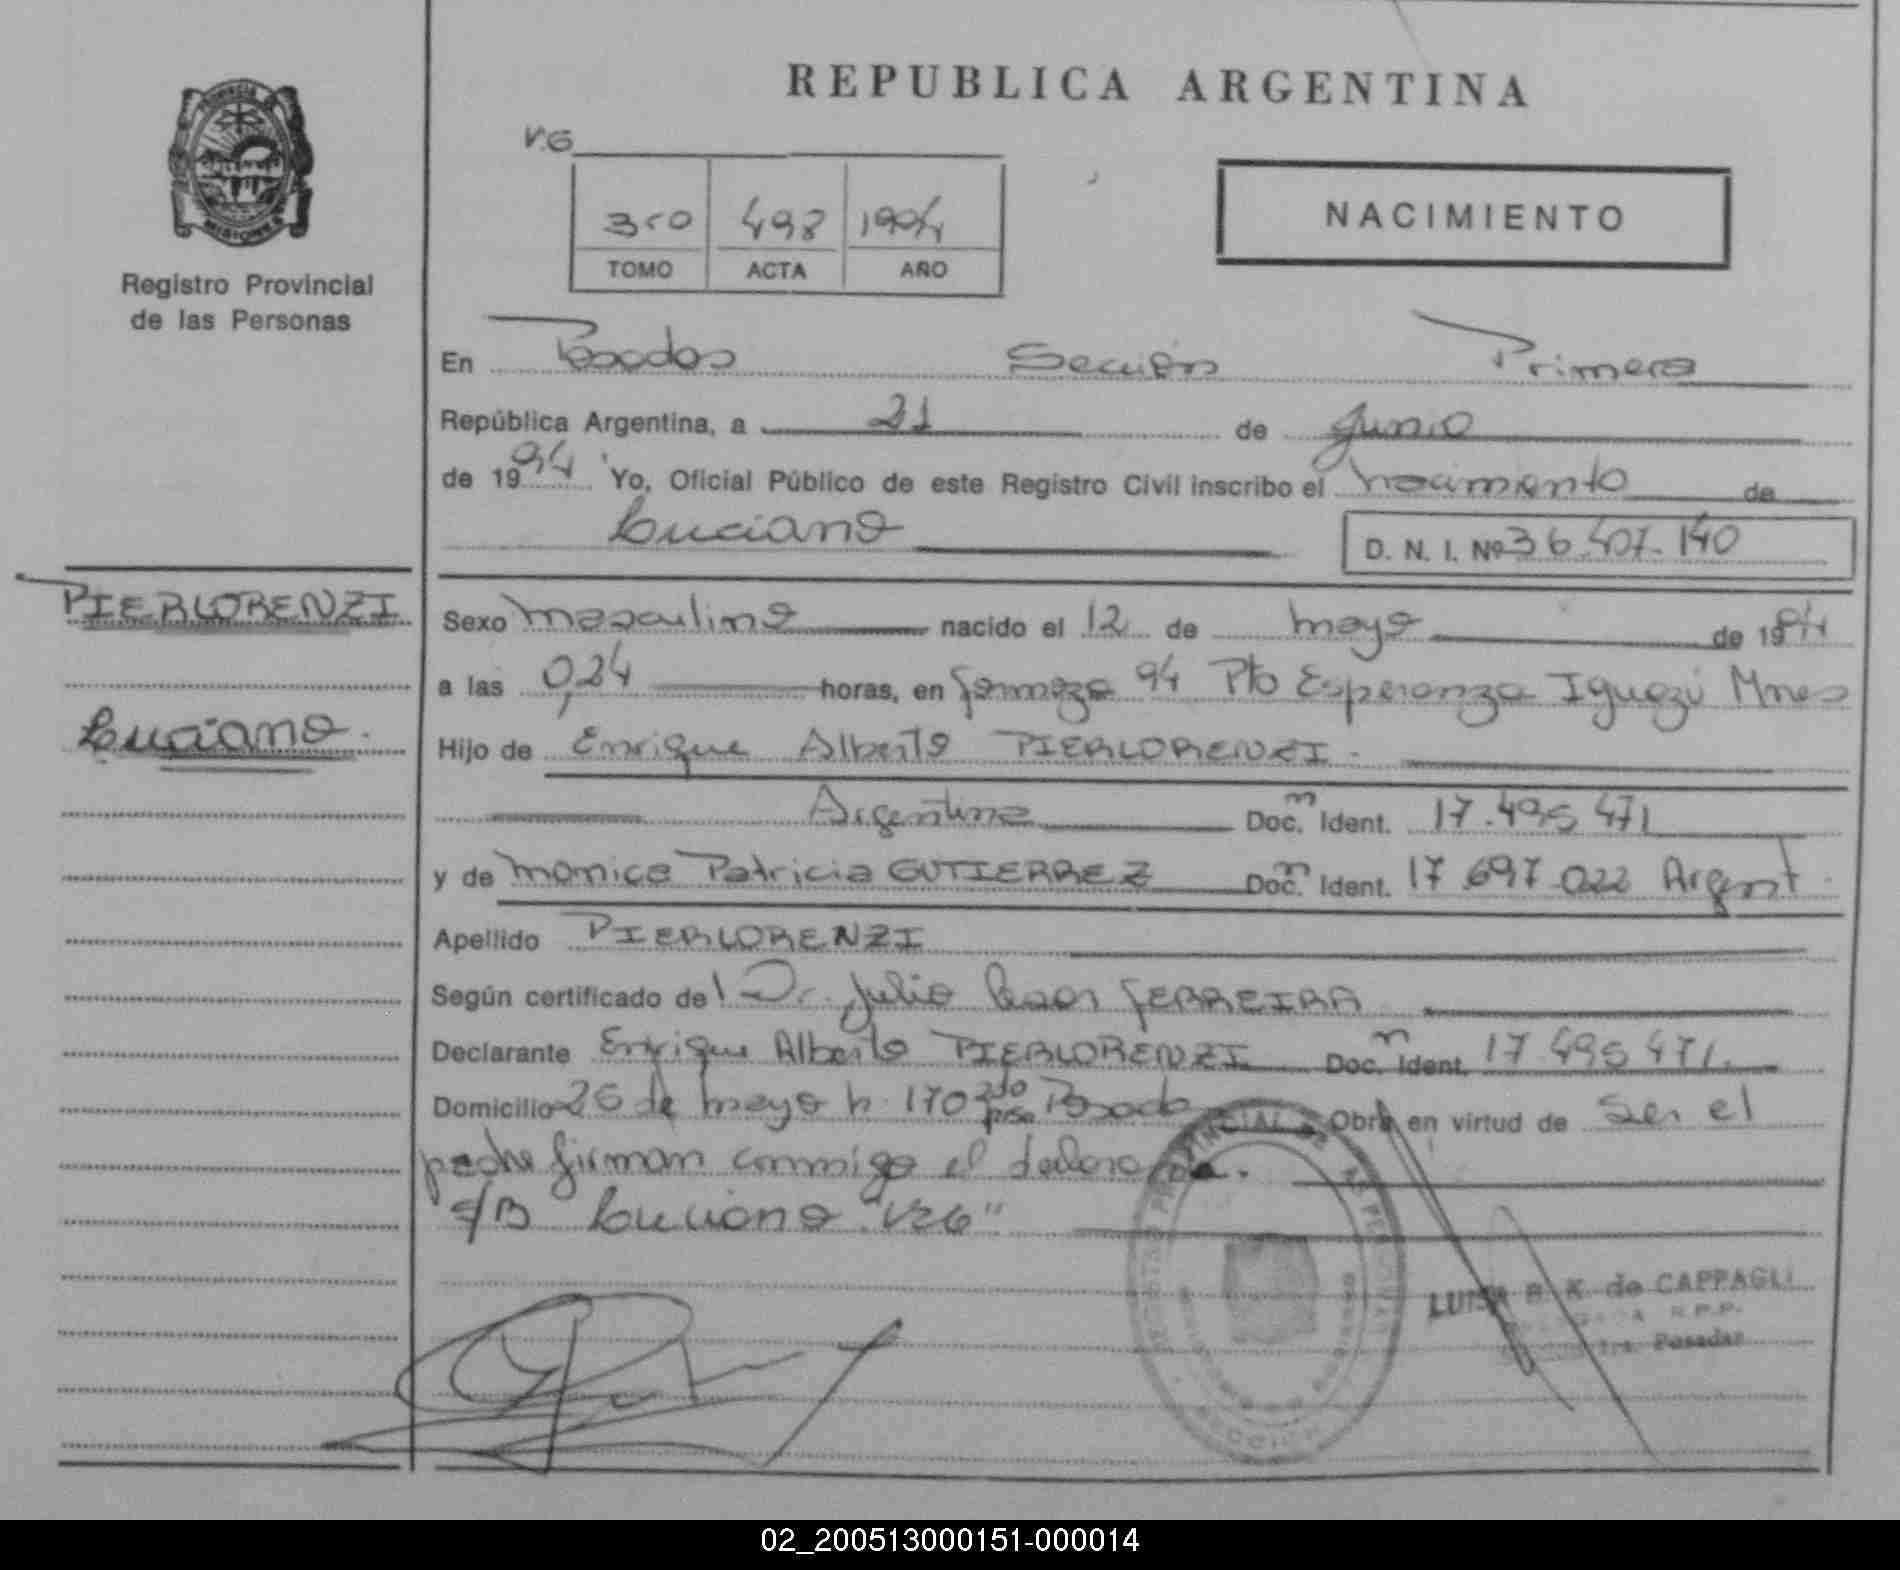 REPUBLICA ARGENTINA
V.G
350 498 1994
TOMO ACTA AÑO
NACIMIENTO
Registro Provincial
de las Personas
En Posadas Sección Primera
República Argentina, a 21 de Junio
de 1994 Yo, Oficial Público de este Registro Civil inscribo el nacimiento de
Luciano
D. N. I. Nº 36.407.140
PIERLORENZI
Luciano.
Sexo masculino nacido el 12 de mayo de 1994
a las 0,24 horas, en formoza 94 Pto Esperanza Iguazú Mnes
Hijo de Enrique Alberto PIERLORENZI.
Argentino Doc. m Ident. 17.495 471
y de Monica Patricia GUTIERREZ Doc. n Ident. 17.697.022 Argent.
Apellido PIERLORENZI
Según certificado del Dr. Julio Cesar FERREIRA
Declarante Enrique Alberto PIERLORENZI Doc. n Ident. 17.495 471.
Domicilio 25 de mayo n 170 2do piso Posada Obra en virtud de Ser el
padre firman conmigo el
S/B Luciano "V26"
LUISA R. K. de CAPPAGLI
R.P.P.
1ra. Posadas
02_200513000151-000014